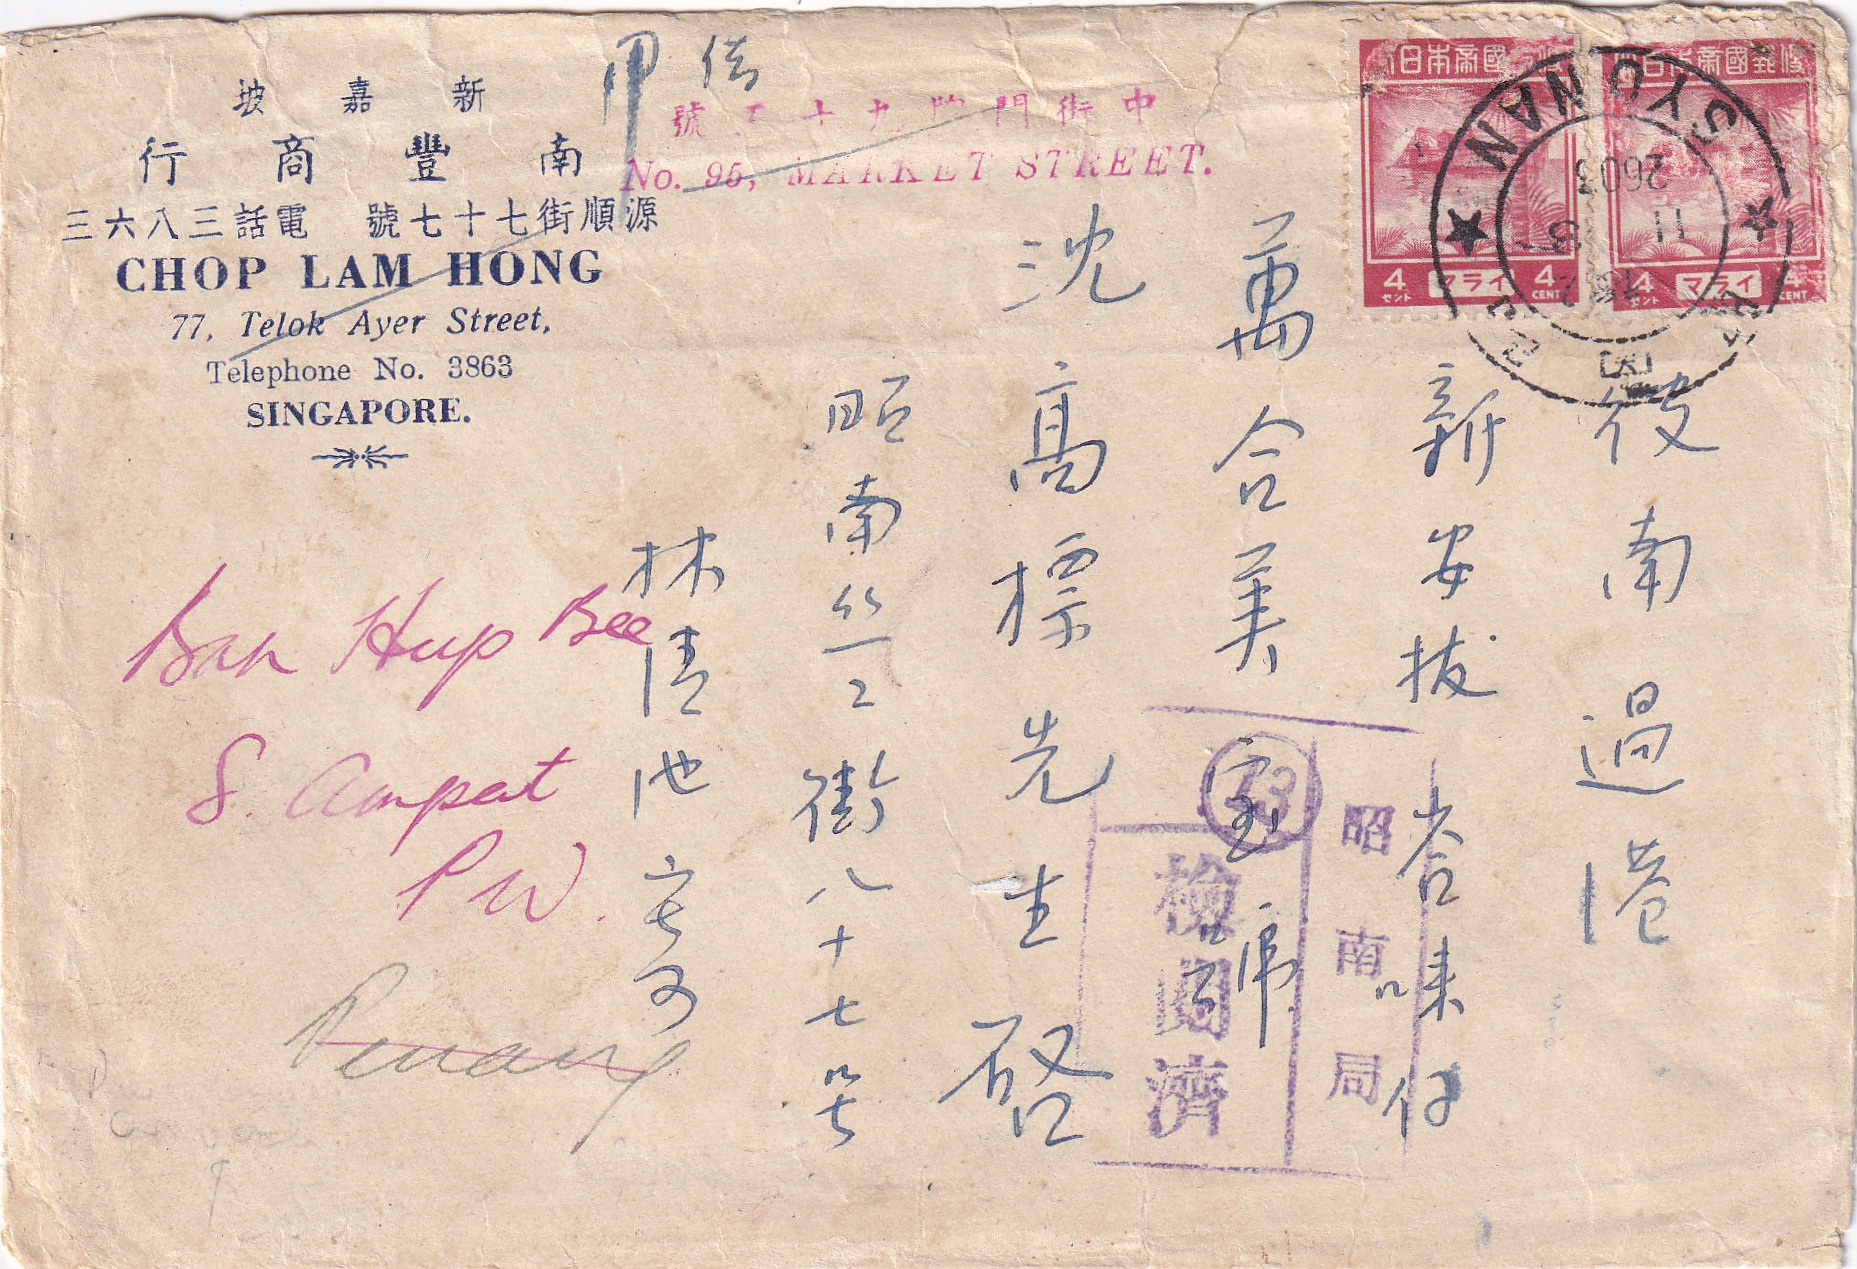 新嘉坡
南豐商行
源順街七十七號 電話三八六三
CHOP LAM HONG
77, Telok Ayer Street,
Telephone No. 3863
SINGAPORE.
中街門牌九十五號
No. 95, MARKET STREET.
日本帝國郵便
4 セント マライ 4 CENT
日本帝國郵便
4 セント マライ 4 CENT
SYONAN
2603
11
彼南過港
新安拔峇味仔
萬合美寶號
沈高標先生啓
昭南絲絲街八十七号
林清池寄
Ban Hup Bee
S. Ampat
P W.
Penang
昭南局
檢閲濟